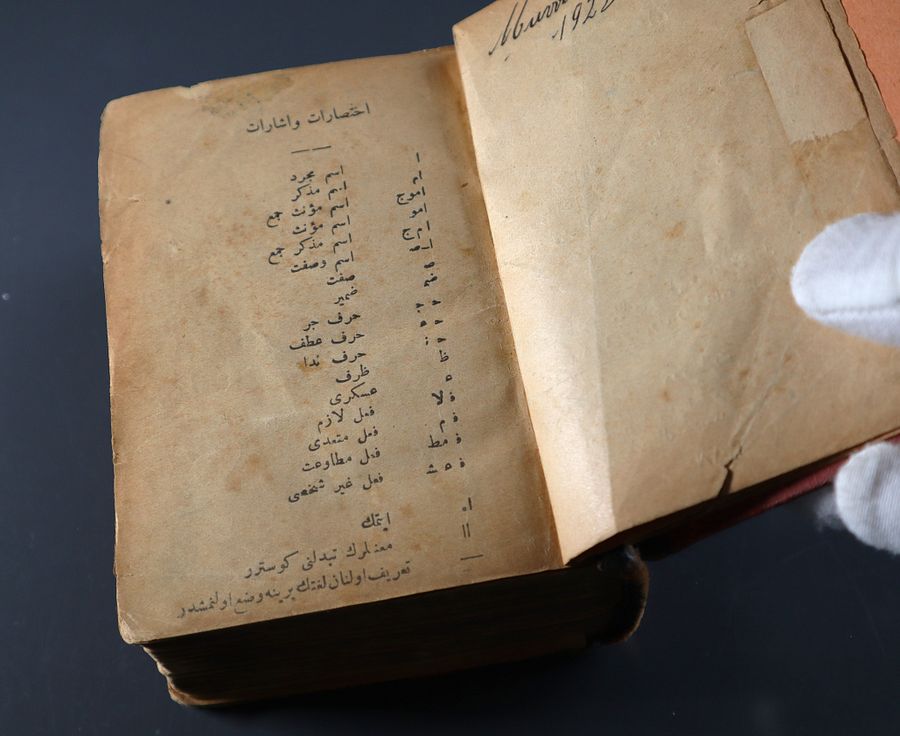 اختصارات واشارات
ا اسم مجرد
ام اسم مذكر
اموج اسم مؤنث جمع
امو اسم مؤنث
ام ج اسم مذكر جمع
ا—ص اسم وصفت
ص صفت
ضم ضمير
ح ج حرف جر
ح ع حرف عطف
ح ن حرف ندا
ظ ظرف
ع عسكرى
ف لا فعل لازم
ف م فعل متعدى
ف مط فعل مطاوعت
ف غ ش فعل غير شخصى
ا. ايتمك
|| معنالرك تبدلنى كوسترر
— تعريف اولنان لغتك يرينه وضع اولنمشدر
1922